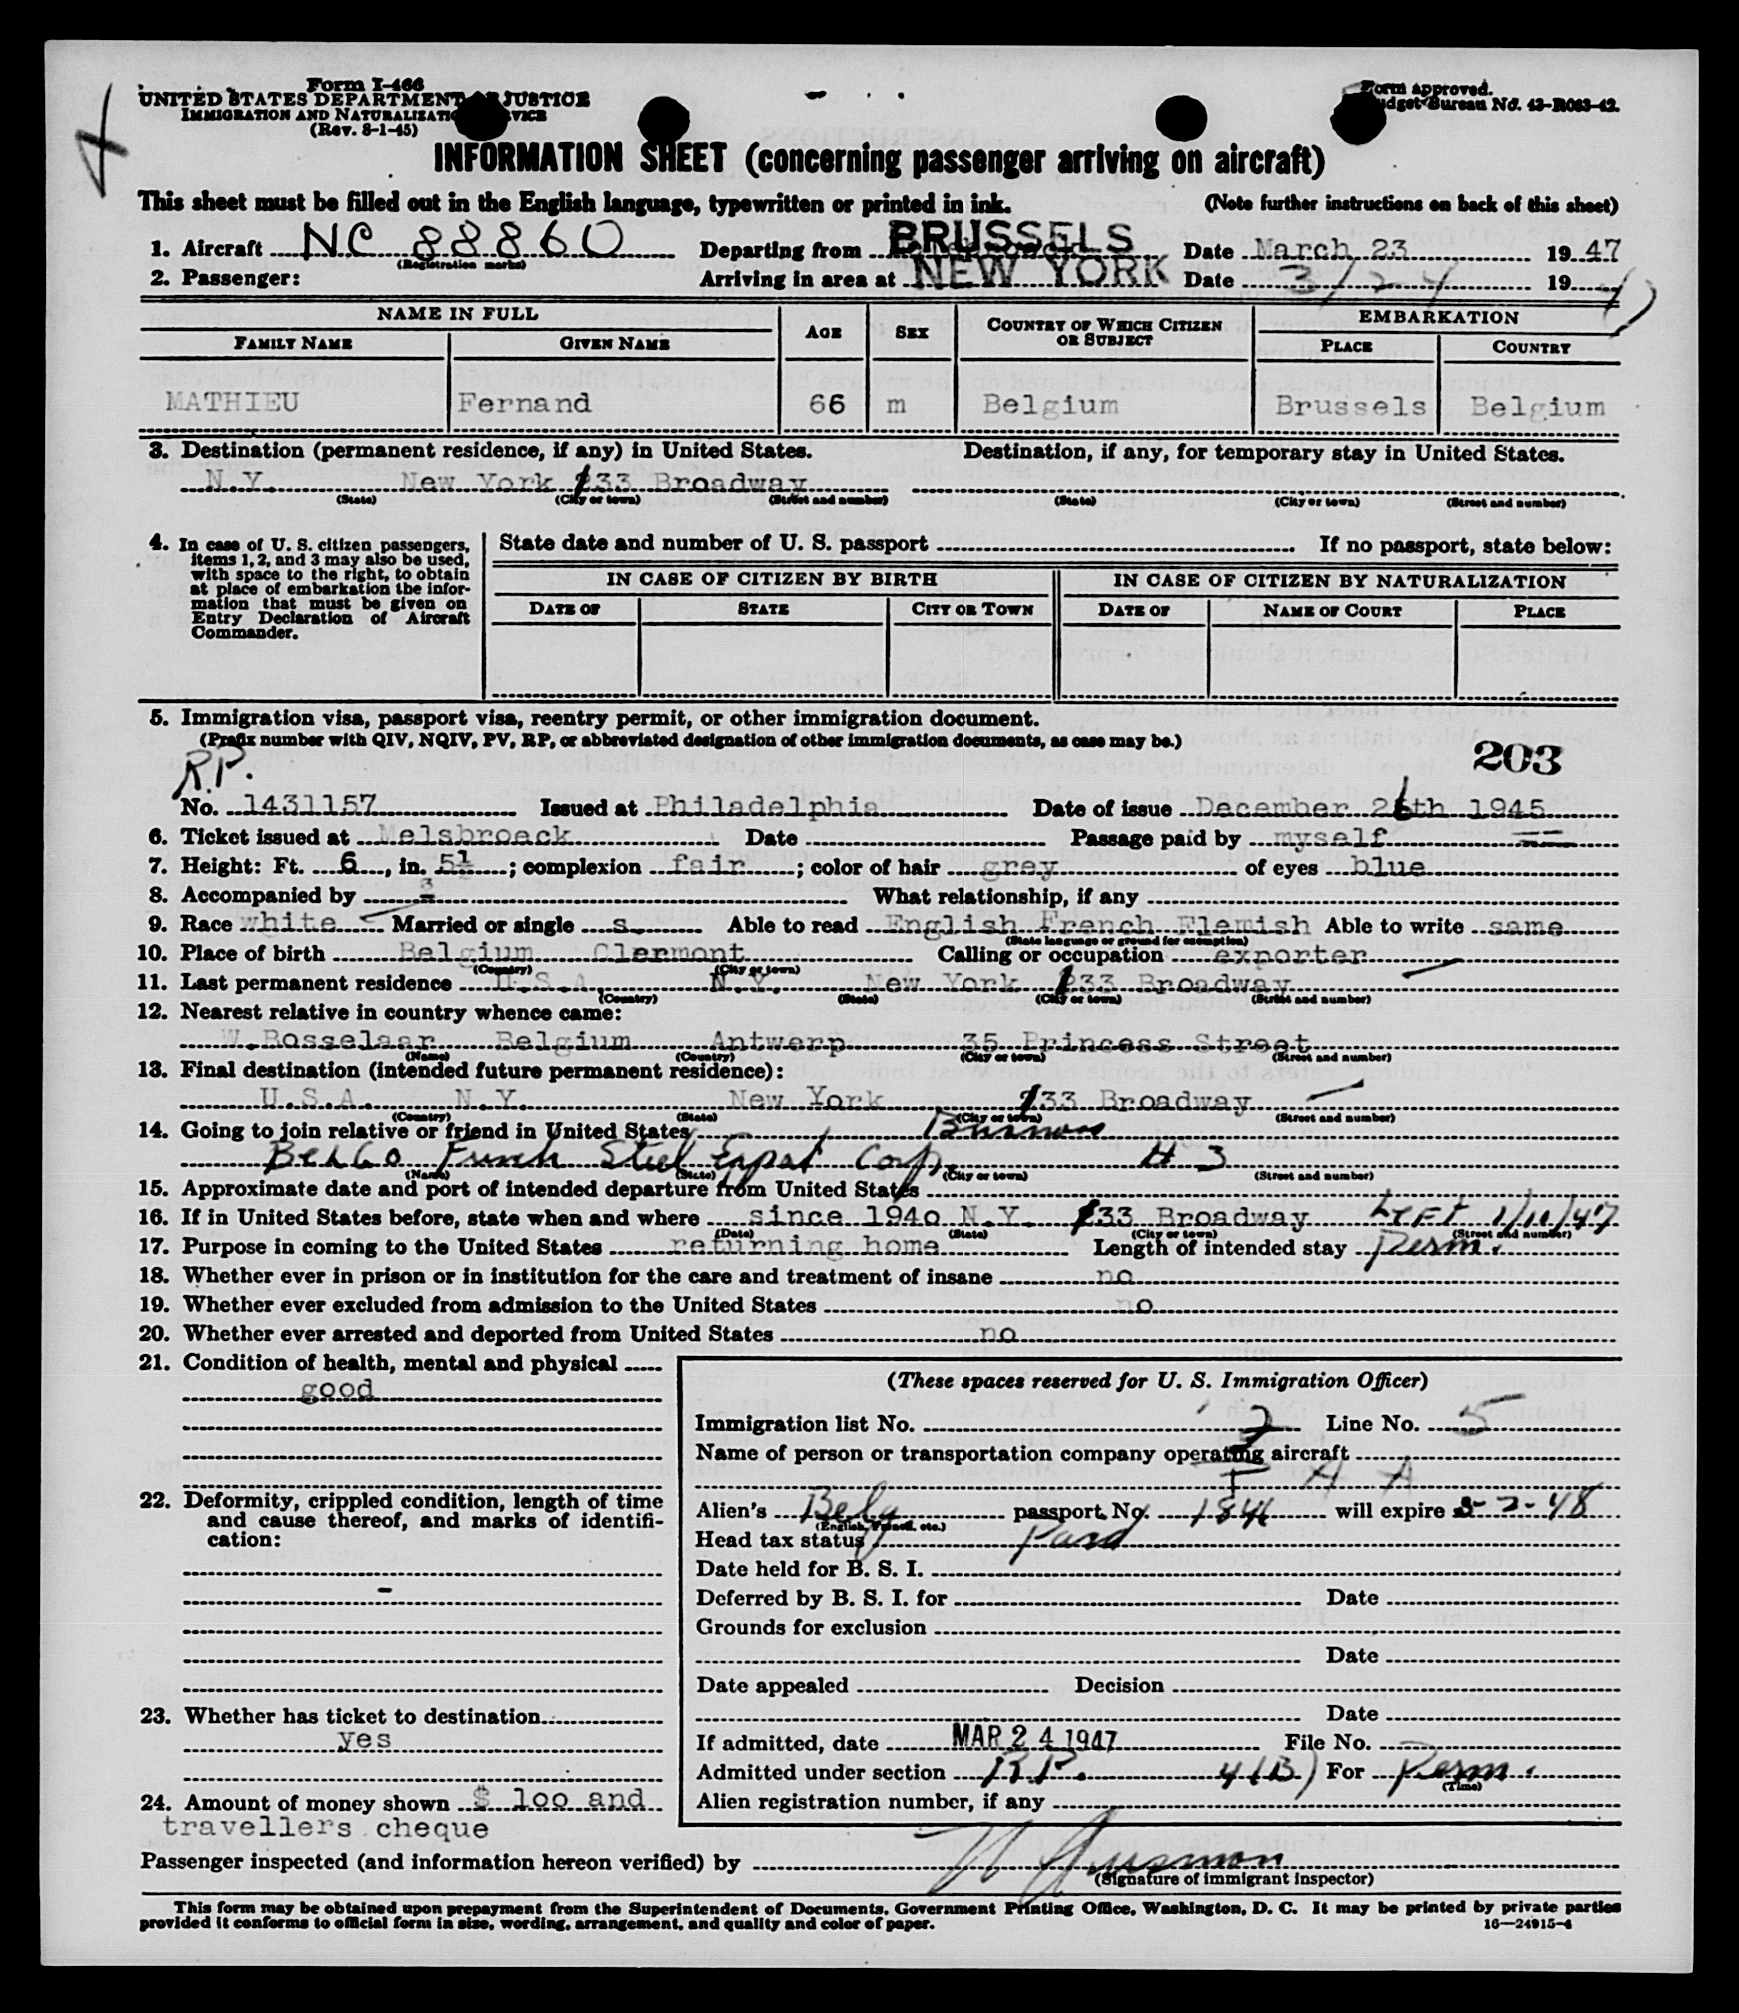 Form I-466
UNITED STATES DEPARTMENT JUSTICE
IMMIGRATION AND NATURALIZATION
(Rev. 8-1-45)
Form approved.
Budget Bureau No. 43-R083-42.
INFORMATION SHEET (concerning passenger arriving on aircraft)
This sheet must be filled out in the English language, typewritten or printed in ink. (Note further instructions on back of this sheet)
1. Aircraft NC 88860 Departing from BRUSSELS Date March 23 1947
(Registration marks)
2. Passenger: Arriving in area at NEW YORK Date 3/24 1947
NAME IN FULL AGE SEX COUNTRY OF WHICH CITIZEN OR SUBJECT EMBARKATION
FAMILY NAME GIVEN NAME PLACE COUNTRY
MATHIEU Fernand 66 m Belgium Brussels Belgium
3. Destination (permanent residence, if any) in United States. Destination, if any, for temporary stay in United States.
N.Y. New York 233 Broadway
(State) (City or town) (Street and number) (State) (City or town) (Street and number)
4. In case of U. S. citizen passengers, items 1, 2, and 3 may also be used, with space to the right, to obtain at place of embarkation the information that must be given on Entry Declaration of Aircraft Commander.
State date and number of U. S. passport If no passport, state below:
IN CASE OF CITIZEN BY BIRTH IN CASE OF CITIZEN BY NATURALIZATION
DATE OF STATE CITY OR TOWN DATE OF NAME OF COURT PLACE
5. Immigration visa, passport visa, reentry permit, or other immigration document.
(Prefix number with QIV, NQIV, PV, RP, or abbreviated designation of other immigration documents, as case may be.)
203
R.P.
No. 1431157 Issued at Philadelphia Date of issue December 26th 1945
6. Ticket issued at Melsbroeck Date Passage paid by myself
7. Height: Ft. 6, in. 5½; complexion fair; color of hair grey of eyes blue
8. Accompanied by What relationship, if any
9. Race white Married or single s. Able to read English French Flemish Able to write same
(State language or ground for exemption)
10. Place of birth Belgium Clermont Calling or occupation exporter
(Country) (City or town)
11. Last permanent residence U.S.A. N.Y. New York 233 Broadway
(Country) (State) (City or town) (Street and number)
12. Nearest relative in country whence came:
W.Bosselaar Belgium Antwerp 35 Princess Street
(Name) (Country) (City or town) (Street and number)
13. Final destination (intended future permanent residence):
U.S.A. N.Y. New York 233 Broadway
(Country) (State) (City or town) (Street and number)
14. Going to join relative or friend in United States Business
Steel Export Corp. # 3
(Name) (State) (City or town) (Street and number)
15. Approximate date and port of intended departure from United States
16. If in United States before, state when and where since 194o N.Y. 233 Broadway Left 1/11/47
(Date) (State) (City or town) (Street and number)
17. Purpose in coming to the United States returning home Length of intended stay Perm.
18. Whether ever in prison or in institution for the care and treatment of insane no
19. Whether ever excluded from admission to the United States no
20. Whether ever arrested and deported from United States no
21. Condition of health, mental and physical
good
22. Deformity, crippled condition, length of time and cause thereof, and marks of identification:
-
23. Whether has ticket to destination
yes
24. Amount of money shown $ 1oo and
travellers cheque
(These spaces reserved for U. S. Immigration Officer)
Immigration list No. 2 Line No. 5
Name of person or transportation company operating aircraft
Alien's Belg passport No. 1846 will expire 8-2-48
(English, French, etc.)
Head tax status Paid
Date held for B. S. I.
Deferred by B. S. I. for Date
Grounds for exclusion
Date
Date appealed Decision
Date
If admitted, date MAR 24 1947 File No.
Admitted under section R.P. 4(B) For Perm.
(Time)
Alien registration number, if any
Passenger inspected (and information hereon verified) by
(Signature of immigrant inspector)
This form may be obtained upon prepayment from the Superintendent of Documents, Government Printing Office, Washington, D. C. It may be printed by private parties
provided it conforms to official form in size, wording, arrangement, and quality and color of paper. 16—24915-4